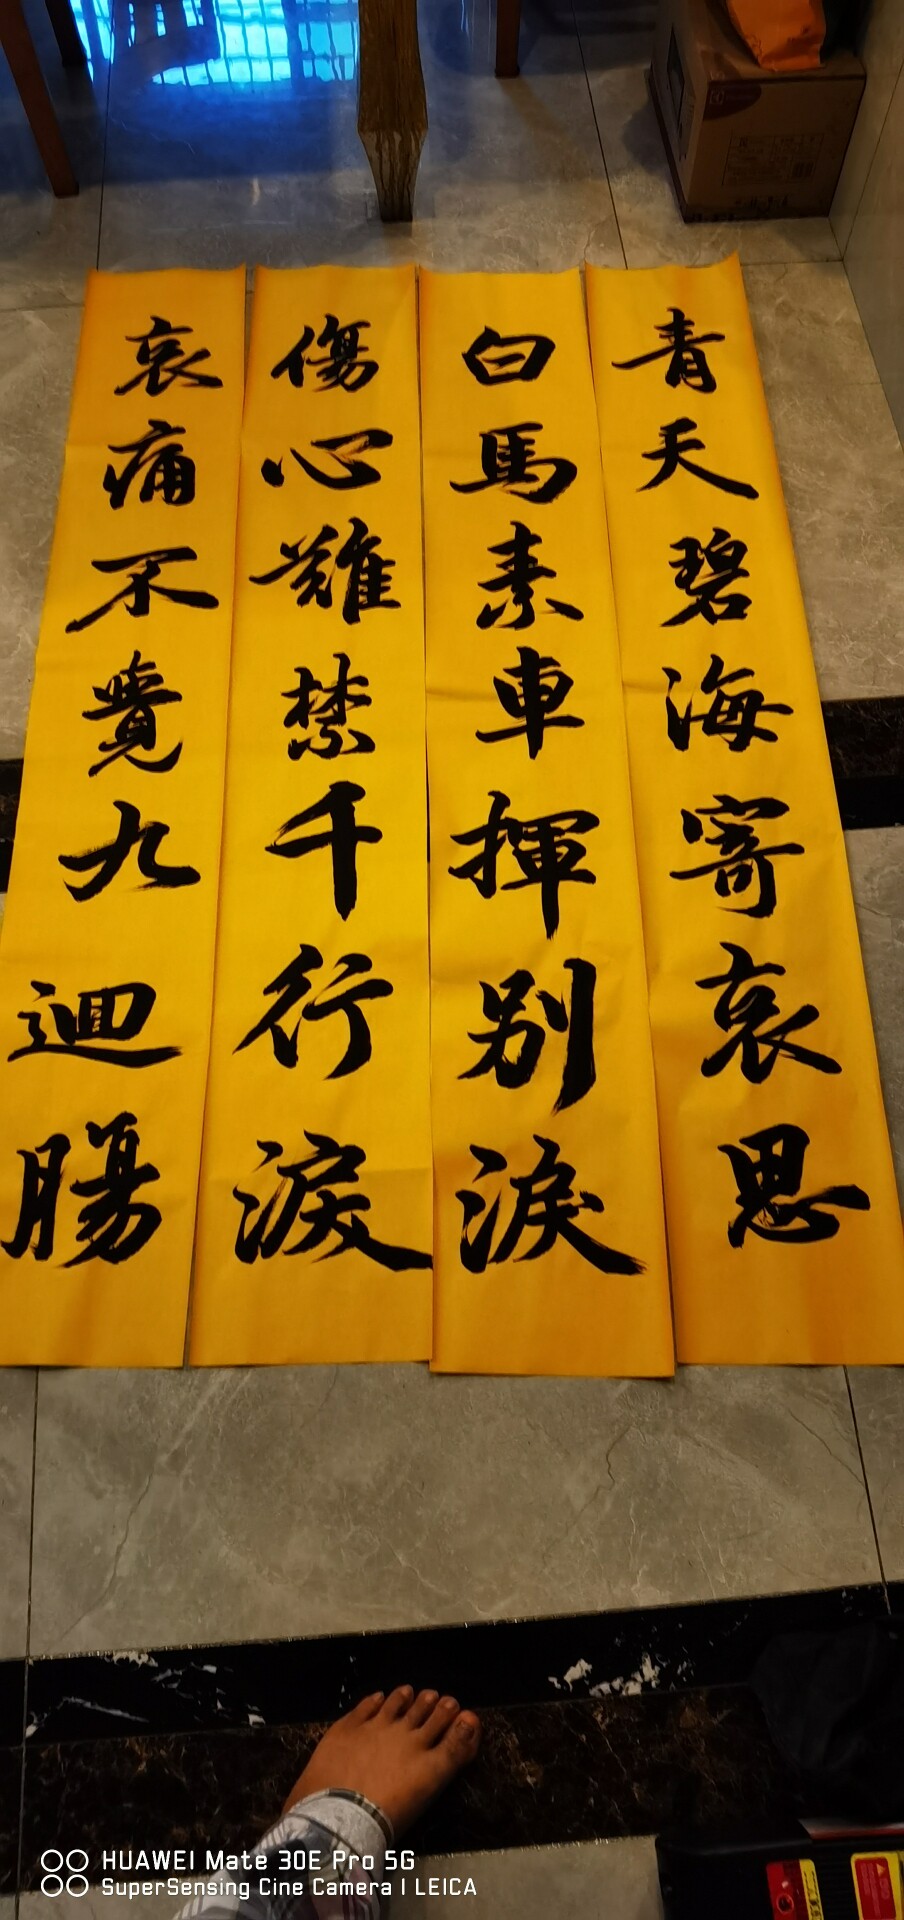 青天碧海寄哀思
白馬素車揮别淚
傷心難禁千行淚
哀痛不覺九迴腸
HUAWEI Mate 30E Pro 5G
SuperSensing Cine Camera | LEICA